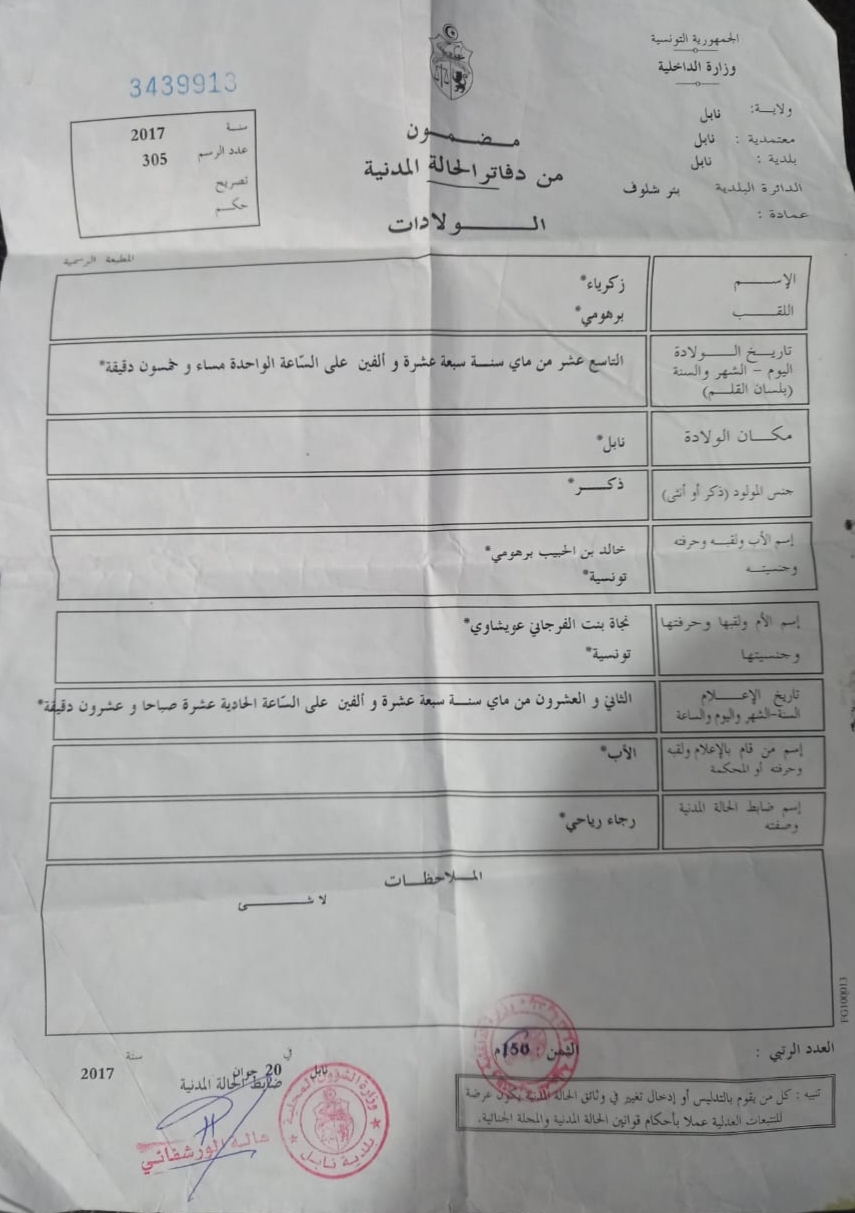 الجمهورية التونسية
وزارة الداخلية
ولاية: نابل
معتمدية : نابل
بلدية : نابل
الدائرة البلدية بئر شلوف
عمادة :
3439913
سنة 2017
عدد الرسم 305
تصريح
حكم
مضمون
من دفاتر الحالة المدنية
الولادات
المطبعة الرسمية
الإسم زكرياء*
اللقب برهومي*
تاريخ الولادة
اليوم - الشهر والسنة
(بلسان القلم)
التاسع عشر من ماي سنة سبعة عشرة و ألفين على السّاعة الواحدة مساء و خمسون دقيقة*
مكان الولادة نابل*
جنس المولود (ذكر أو أنثى) ذكر*
إسم الأب ولقبه وحرفته خالد بن الحبيب برهومي*
وجنسيته تونسية*
إسم الأم ولقبها وحرفتها نجاة بنت الفرجاني عويشاوي*
وجنسيتها تونسية*
تاريخ الإعلام
السنة-الشهر واليوم والساعة
الثاني و العشرون من ماي سنة سبعة عشرة و ألفين على السّاعة الحادية عشرة صباحا و عشرون دقيقة*
إسم من قام بالإعلام ولقبه
وحرفته أو المحكمة
الأب*
إسم ضابط الحالة المدنية
وصفته
رجاء رياحي*
الملاحظات
لا شيء
FG100013
العدد الرتبي :
الثمن : 150م
نابل في 20 جوان سنة 2017
ضابط الحالة المدنية
هالة الورشفاني
وزارة الشؤون المحلية
بلدية نابل
تنبيه : كل من يقوم بالتدليس أو إدخال تغيير في وثائق الحالة المدنية يكون عرضة
للتتبعات العدلية عملا بأحكام قوانين الحالة المدنية والمجلة الجنائية.